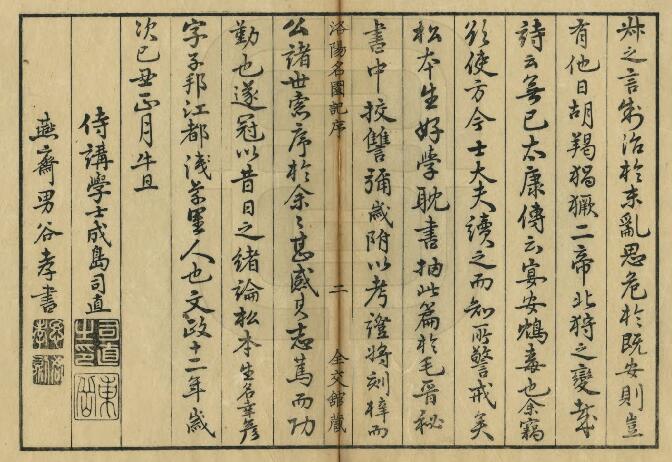 叔之言制治於未亂思危於既安則豈
有他日胡羯猖獗二帝北狩之變哉
詩云無已太康傳云宴安鴆毒也余竊
欲使方今士大夫讀之而知所警戒矣
松本生好學耽書抽此篇於毛晉秘
書中挍讐彌歲附以考證將刻梓而
洛陽名園記序
二
全交館藏
公諸世索序於余〻甚感其志篤而功
勤也遂冠以昔日之緒論松本生名幸彥
字子邦江都淺草里人也文政十二年歲
次己丑正月旦
侍講學士成島司直
司直之印
燕齋男谷孝書